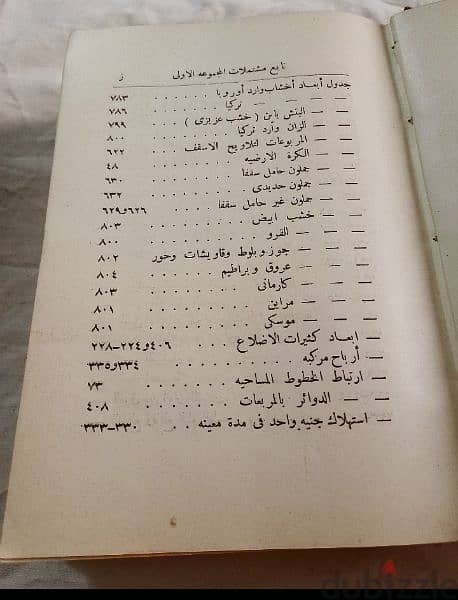 تابع مشتملات المجموعه الاولى ز
جدول أبعاد أخشاب وارد أوروبا . . . . . . ٧٨٣
— — — تركيا . . . . . . ٧٨٦
— — البتش باين ( خشب عزيزى ) . . . . ٧٩٩
— — الزان وارد تركيا . . . . . . ٨٠٠
— — المربوعات لتلاويح الاسقف . . . . ٦٢٢
— — الكرة الارضيه . . . . . . ٤٨
— — جملون حامل سقفا . . . . . . ٦٣٠
— — جملون حديدى . . . . . . ٦٣٢
— — جملون غير حامل سقفا . . . . ٦٢٦و٦٢٩
— — خشب ابيض . . . . . . ٨٠٣
— — القرو . . . . . . ٨٠٠
— — جوز وبلوط وقاويشات وحور . . . ٨٠٢
— — عروق وبراطيم . . . . . . ٨٠٤
— — كارمانى . . . . . . ٨٠٣
— — مراين . . . . . . ٨٠١
— — موسكى . . . . . . ٨٠١
— ابعاد كثيرات الاضلاع . . . ٤٠٦و٢٢٤–٢٢٨
— أرباح مركبه . . . . . . ٣٣٤و٣٣٥
— ارتباط الخطوط المساحيه . . . . . ٧٣
— — الدوائر بالمربعات . . . . . ٤٠٨
— استهلاك جنيه واحد فى مدة معينه . . ٣٣٠–٣٣٣
dubizzle